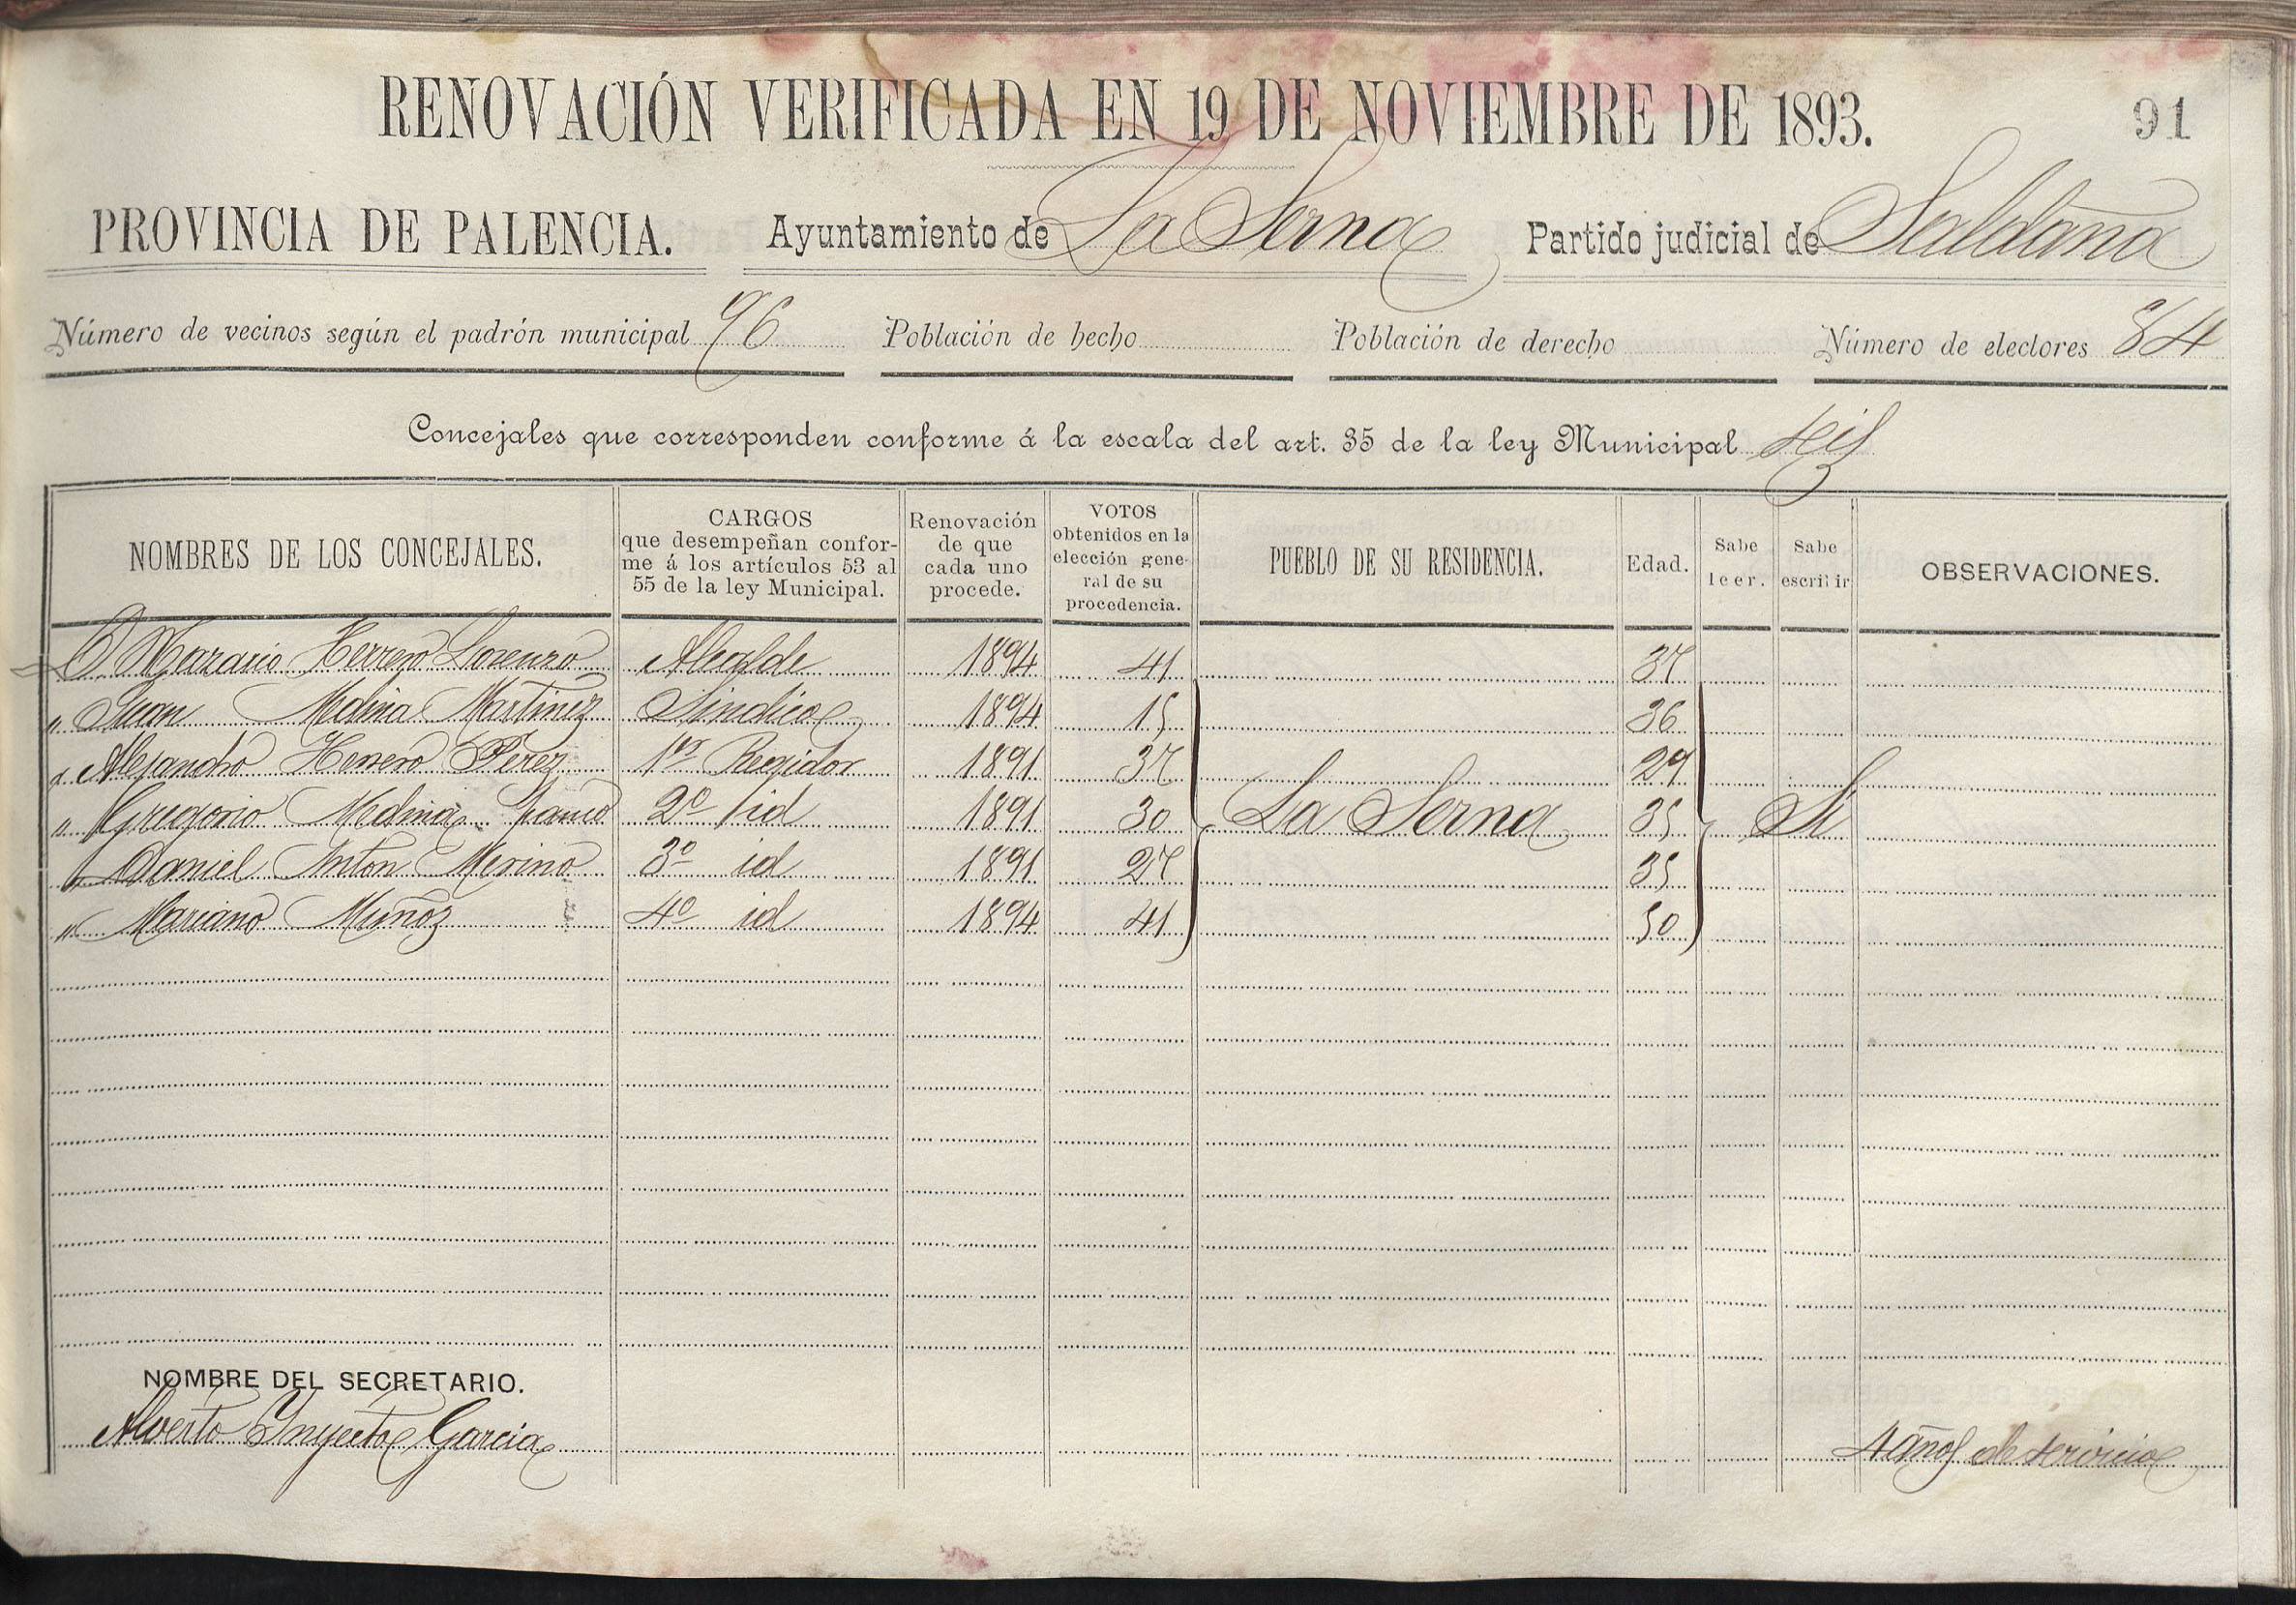 RENOVACIÓN VERIFICADA EN 19 DE NOVIEMBRE DE 1893. 91
PROVINCIA DE PALENCIA. Ayuntamiento de La Serna Partido judicial de Saldaña
Número de vecinos según el padrón municipal 96 Población de hecho Población de derecho Número de electores 84
Concejales que corresponden conforme á la escala del art. 35 de la ley Municipal seis
NOMBRES DE LOS CONCEJALES. CARGOS que desempeñan confor-me á los artículos 53 al 55 de la ley Municipal. Renovación de que cada uno procede. VOTOS obtenidos en la elección gene-ral de su procedencia. PUEBLO DE SU RESIDENCIA. Edad. Sabe leer. Sabe escribir OBSERVACIONES.
D. Herrero Lorenzo Alcalde 1894 41 37
" Juan Medina Martinez Sindico 1894 15 36
" Alejandro Herrero Perez 1er Regidor 1891 37 29
" Gregorio Medina 2º id 1891 30 La Serna 35 Si
" Daniel Anton Merino 3º id 1891 27 35
" Mariano Muñoz 4º id 1894 41 50
NOMBRE DEL SECRETARIO.
Alverto Inyesto Garcia 4 años de servicio